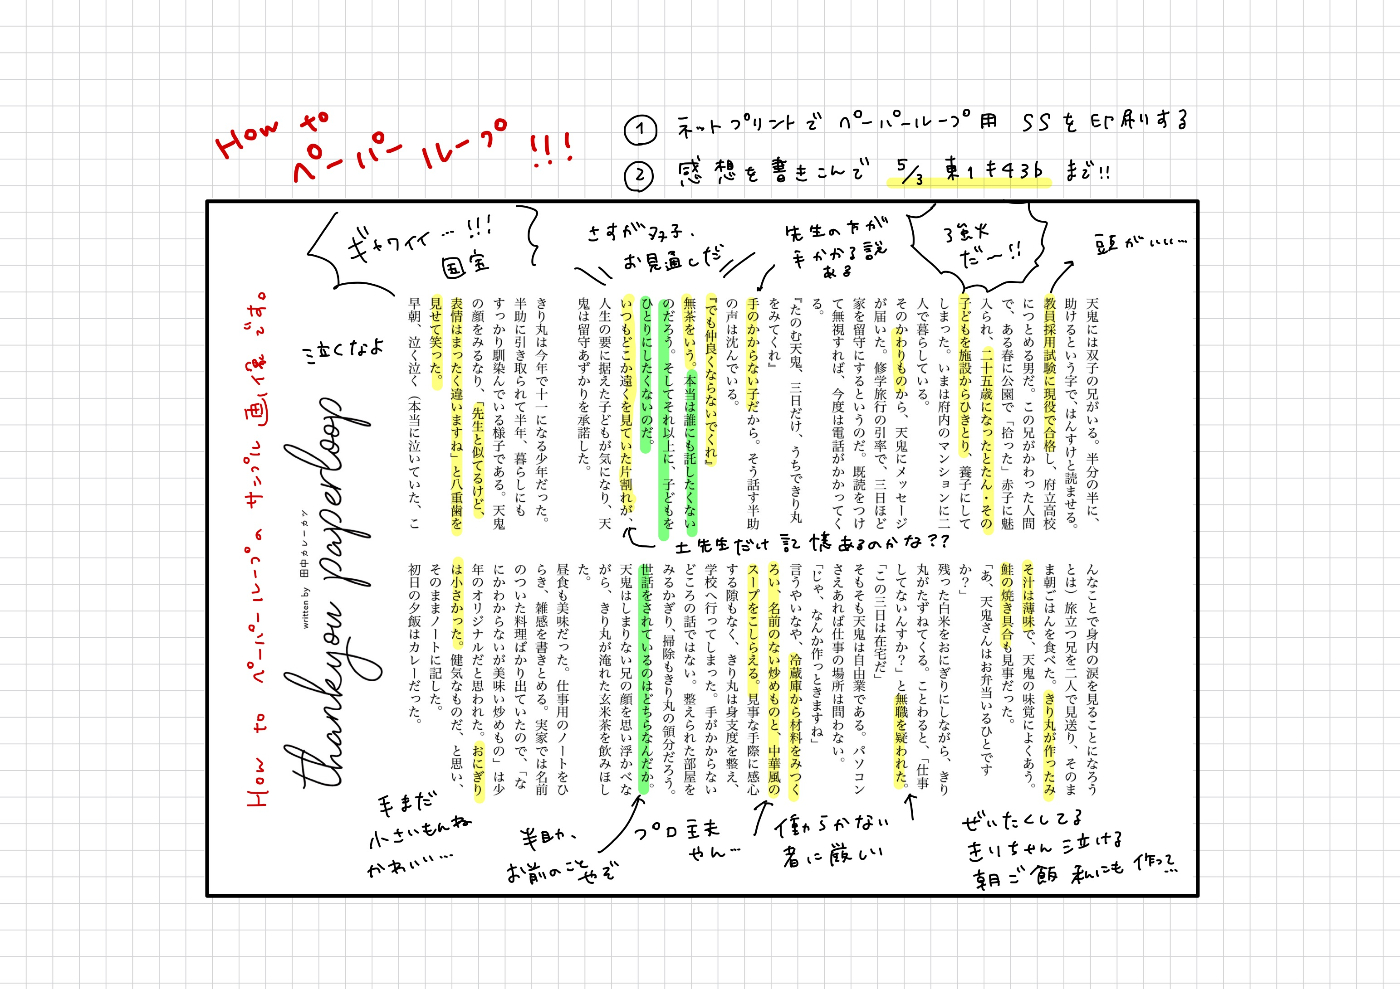 How to
ペーパールーープ!!!
① ネットプリントで ペーパーループ用 SSを印刷する
② 感想を書きこんで 5/3 東1 キ43b まで!!
頭がいい…
強火
だ〜!!
先生の方が
手かかる説
ある
さすが双子、
お見通しだ
ギャワイイ…!!!
国宝
天鬼には双子の兄がいる。半分の半に、
助けるという字で、はんすけと読ませる。
教員採用試験に現役で合格し、府立高校
につとめる男だ。この兄がかわった人間
で、ある春に公園で「拾った」赤子に魅
入られ、二十五歳になったとたん・その
子どもを施設からひきとり、養子にして
しまった。いまは府内のマンションに二
人で暮らしている。
そのかわりものから、天鬼にメッセージ
が届いた。修学旅行の引率で、三日ほど
家を留守にするというのだ。既読をつけ
て無視すれば、今度は電話がかかってく
る。
『たのむ天鬼、三日だけ、うちできり丸
をみてくれ』
手のかからない子だから。そう話す半助
の声は沈んでいる。
『でも仲良くならないでくれ』
無茶をいう。本当は誰にも託したくない
のだろう。そしてそれ以上に、子どもを
ひとりにしたくないのだ。
いつもどこか遠くを見ていた片割れが、
人生の要に据えた子どもが気になり、天
鬼は留守あずかりを承諾した。
きり丸は今年で十一になる少年だった。
半助に引き取られて半年、暮らしにも
すっかり馴染んでいる様子である。天鬼
の顔をみるなり、「先生と似てるけど、
表情はまったく違いますね」と八重歯を
見せて笑った。
早朝、泣く泣く（本当に泣いていた、こ
泣くなよ
土先生だけ記憶あるのかな??
んなことで身内の涙を見ることになろう
とは）旅立つ兄を二人で見送り、そのま
ま朝ごはんを食べた。きり丸が作ったみ
そ汁は薄味で、天鬼の味覚によくあう。
鮭の焼き具合も見事だった。
「あ、天鬼さんはお弁当いるひとです
か？」
残った白米をおにぎりにしながら、きり
丸がたずねてくる。ことわると、「仕事
してないんすか？」と無職を疑われた。
「この三日は在宅だ」
そもそも天鬼は自由業である。パソコン
さえあれば仕事の場所は問わない。
「じゃ、なんか作っときますね」
言うやいなや、冷蔵庫から材料をみつく
ろい、名前のない炒めものと、中華風の
スープをこしらえる。見事な手際に感心
する隙もなく、きり丸は身支度を整え、
学校へ行ってしまった。手がかからない
どころの話ではない。整えられた部屋を
みるかぎり、掃除もきり丸の領分だろう。
世話をされているのはどちらなんだか。
天鬼はしまりない兄の顔を思い浮かべな
がら、きり丸が淹れた玄米茶を飲みほし
た。
昼食も美味だった。仕事用のノートをひ
らき、雑感を書きとめる。実家では名前
のついた料理ばかり出ていたので、「な
にかわからないが美味い炒めもの」は少
年のオリジナルだと思われた。おにぎり
は小さかった。健気なものだ、と思い、
そのままノートに記した。
初日の夕飯はカレーだった。
ぜいたくしてる
きりちゃん 泣ける
朝ご飯 私にも作って…
働らかない
者に厳しい
プロ主夫
やん…
半助、
お前のことやぞ
手まだ
小さいもんね
かわいい…
written by 田中かレーメン
thankyou paperloop
How to ペーパーループの サンプル画像です。